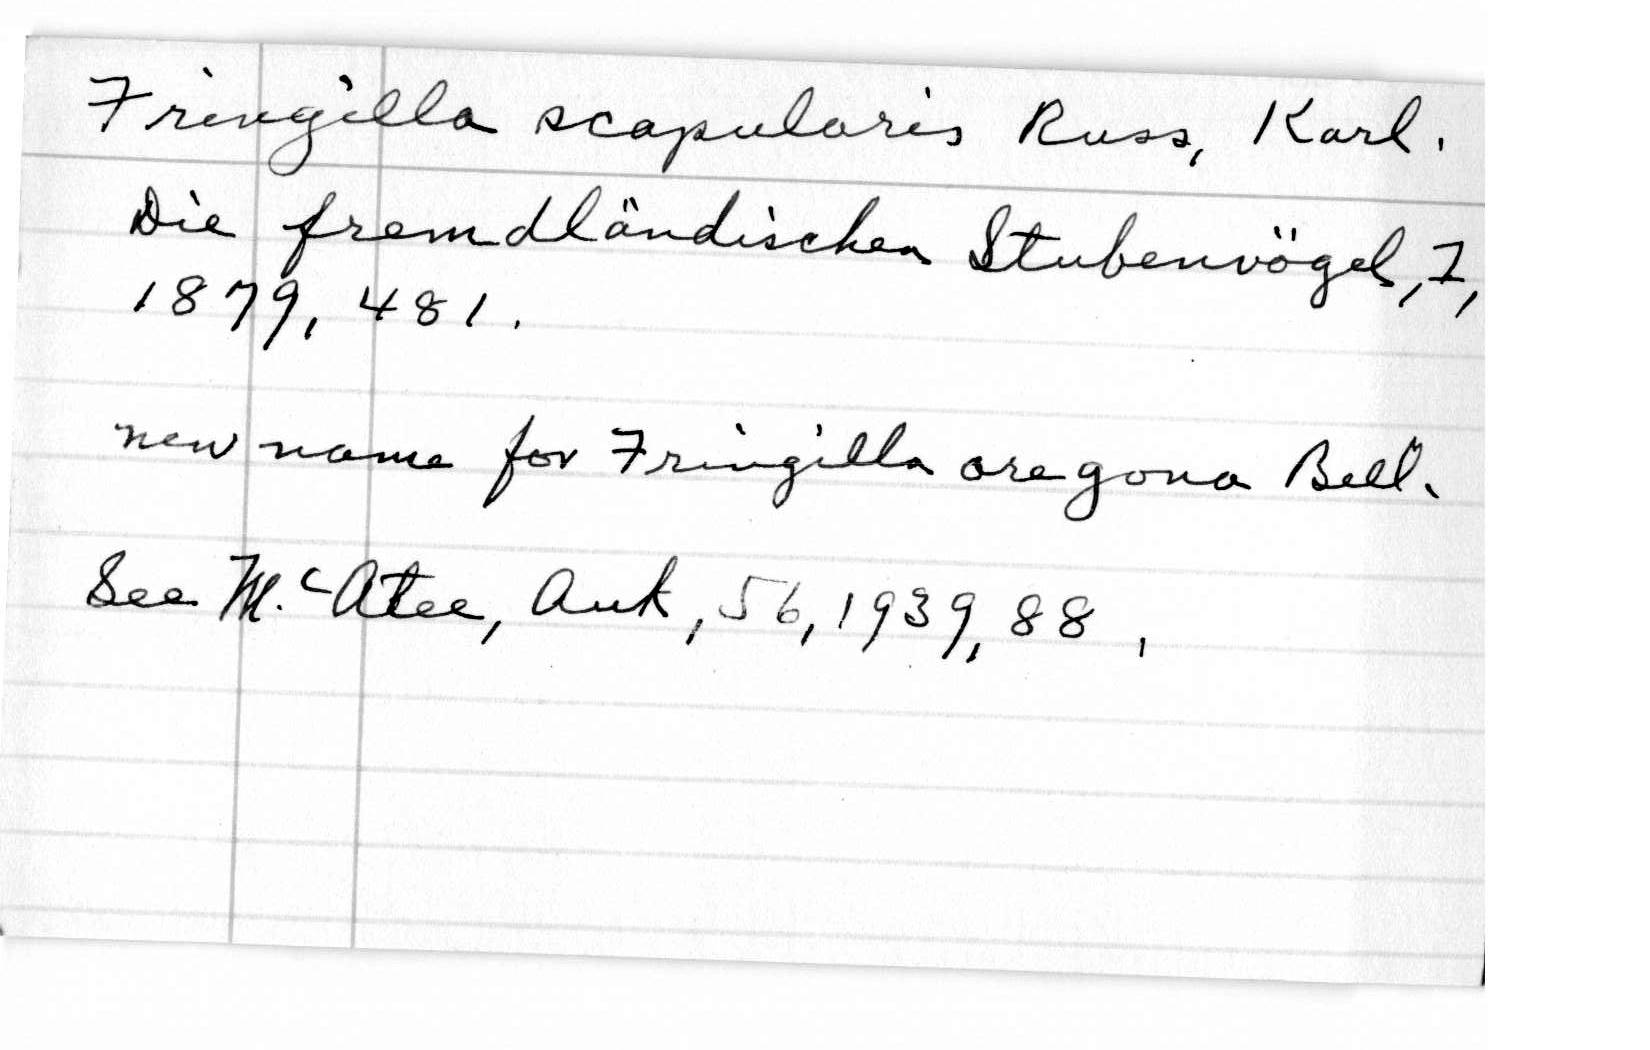 Fringilla scapularis Russ, Karl.
Die fremdländischen Stubenvögel, I,
1879, 481.
new name for Fringilla oregona Bell.
See McAtee, Auk, 56, 1939, 88.